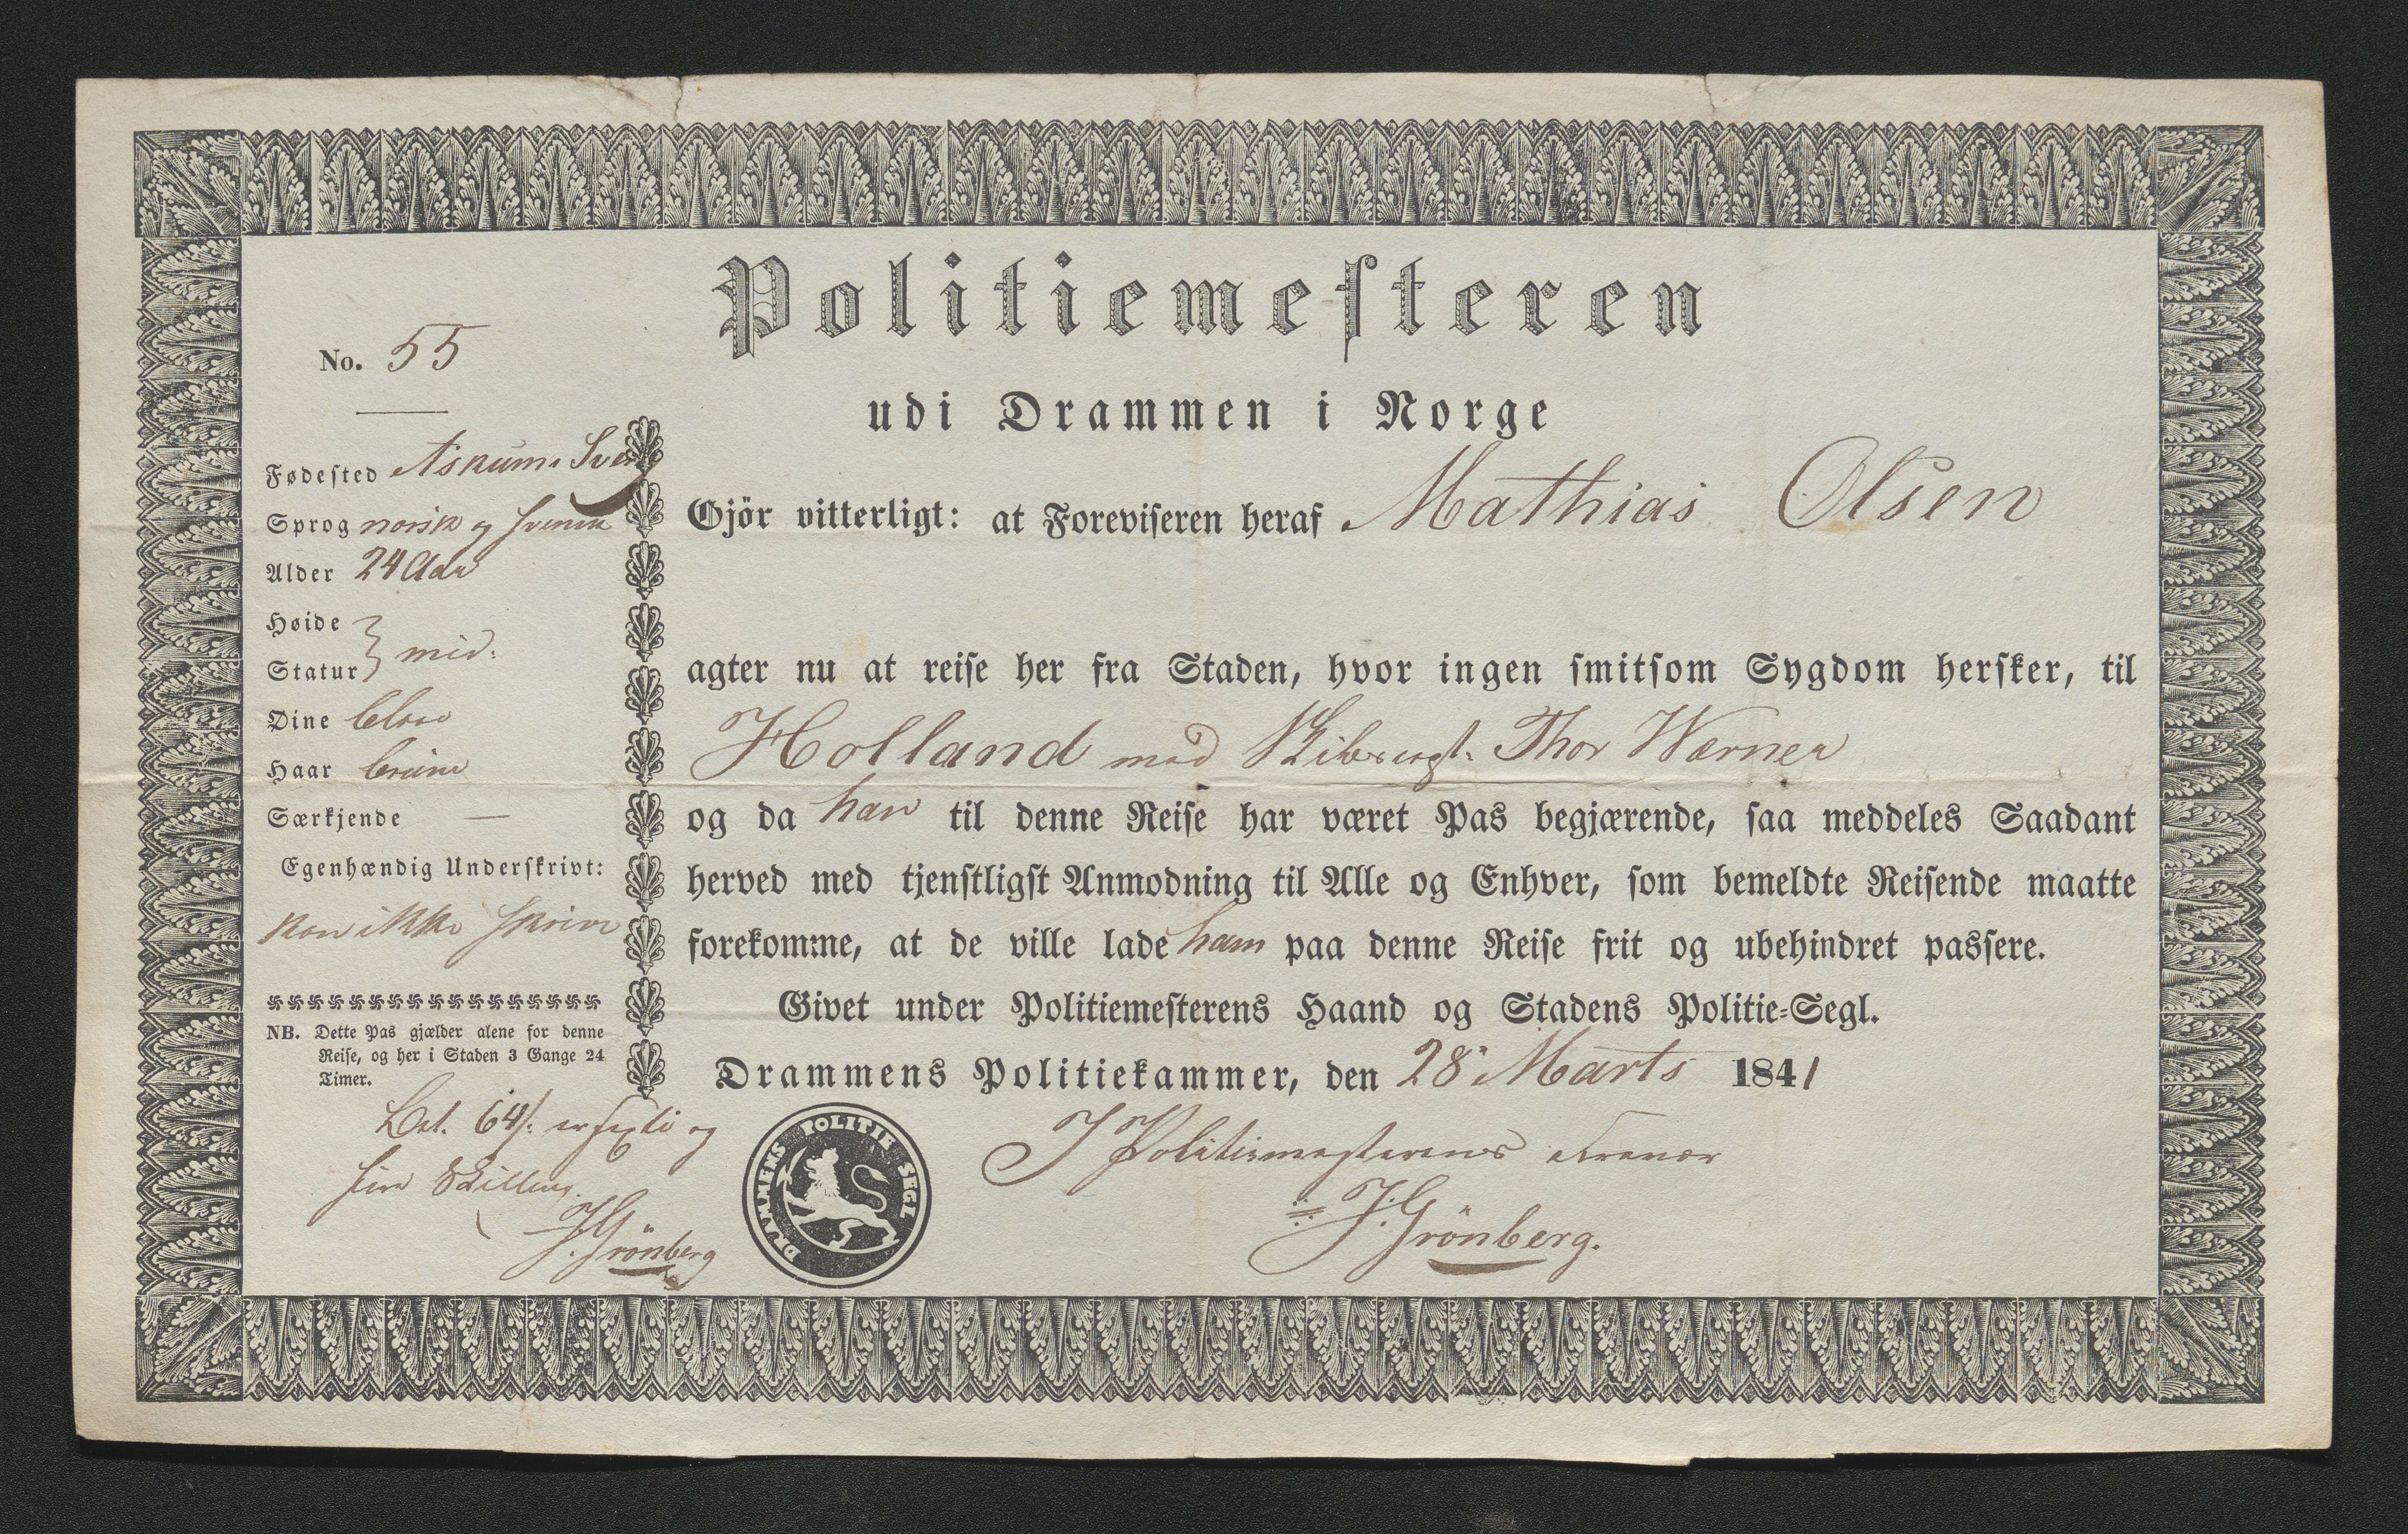 Politiemeſteren
udi Drammen i Norge
No. 55
Fødeſted Askum i Sverig
Sprog norsk og svensk
Alder 24 Aar
Høide
Statur } mid:
Øine blaa
Haar brune
Særkjende —
Egenhændig Underſkrivt:
kan ikke skrive
NB. Dette Pas gjælder alene for denne
Reiſe, og her i Staden 3 Gange 24
Timer.
Bet. 64 s: er sexti og
fire Skilling.
J. Grönberg
Gjör vitterligt: at Foreviſeren heraf Mathias Olsen
agter nu at reiſe her fra Staden, hvor ingen ſmitſom Sygdom herſker, til
Holland med Thor Werner
og da han til denne Reiſe har været Pas begjærende, ſaa meddeles Saadant
herved med tjenſtligſt Anmodning til Alle og Enhver, ſom bemeldte Reiſende maatte
forekomme, at de ville lade ham paa denne Reiſe frit og ubehindret paſſere.
Givet under Politiemeſterens Haand og Stadens Politie-Segl.
Drammens Politiekammer, den 28 Marts 1841
DRAMMENS POLITIE SEGL
I Politiemesterens Fravær
J. Grönberg.